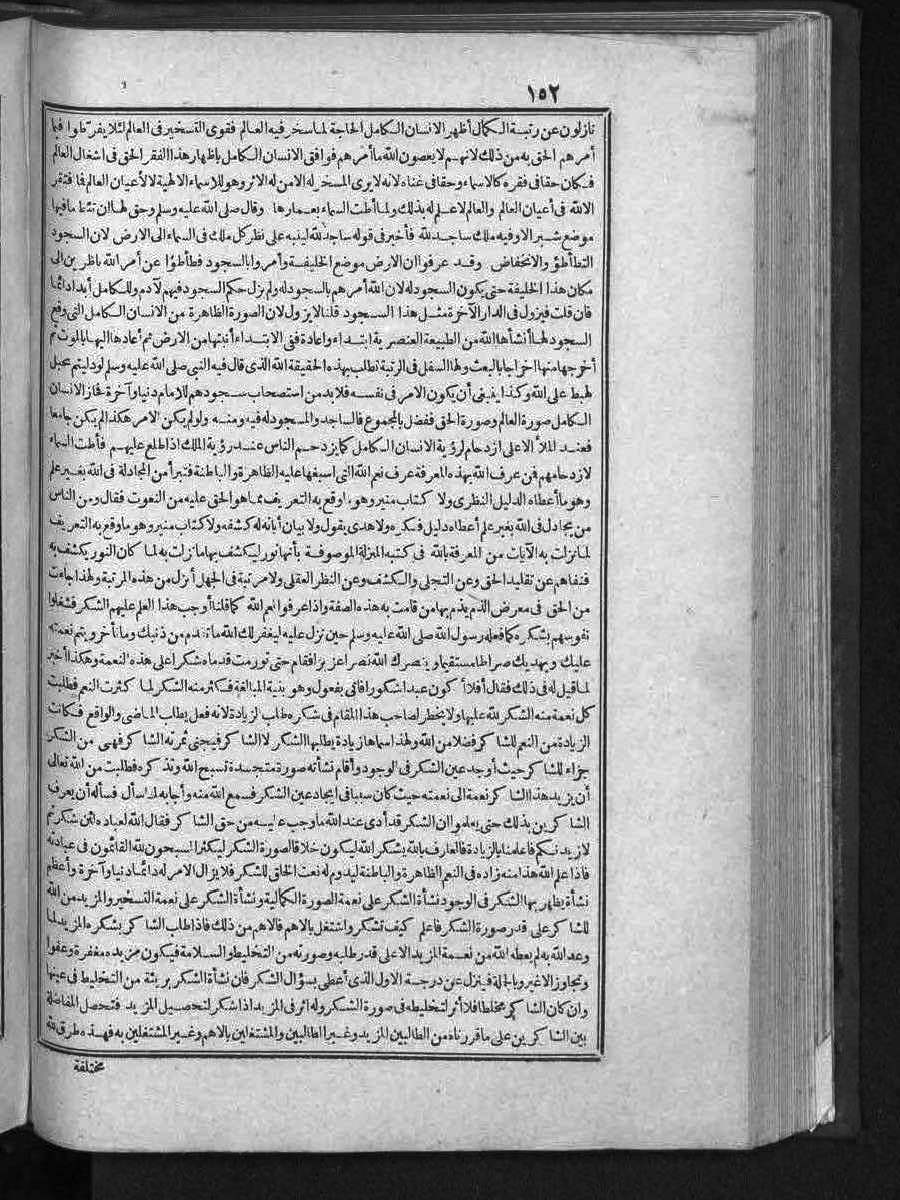 ١٥٢
نازلون عن رتبة الكمال أظهر الانسان الكامل الحاجة لما سخر فيه العالم فقوى التسخير فى العالم لئلا يفرّطوا فيما
أمرهم الحق به من ذلك لانهم لا يعصون الله ما أمرهم فوافق الانسان الكامل باظهار هذا الفقر الحق فى اشغال العالم
فكان حقا فى فقره كالاسماء وحقا فى غناه لانه لا يرى المسخر له الا من له الاثر وهو للاسماء الالهية لا لأعيان العالم فما افتقر
الا لله فى أعيان العالم والعالم لا علم له بذلك ولما أطت السماء بعمارها وقال صلى الله عليه وسلم وحق لها ان تئط ما فيها
موضع شبر الا وفيه ملك ساجد لله فأخبر فى قوله ساجد لله لينبه على نظر كل ملك فى السماء الى الارض لان السجود
التطأطؤ والانخفاض وقد عرفوا ان الارض موضع الخليفة وأمروا بالسجود فطأطؤا عن أمر الله ناظرين الى
مكان هذا الخليفة حتى يكون السجود له لان الله أمرهم بالسجود له ولم يزل حكم السجود فيهم لآدم وللكامل أبدا دائما
فان قلت فيزول فى الدار الآخرة مثل هذا السجود قلنا لا يزول لان الصورة الظاهرة من الانسان الكامل التى وقع
السجود لها أنشأها الله من الطبيعة العنصرية ابتداء واعادة فنى الابتداء أنبتها من الارض ثم أعادها اليها بالموت ثم
أخرجها منها اخراجا بالبعث ولها السفل فى الرتبة تطلب بهذه الحقيقة الله الذى قال فيه النبى صلى الله عليه وسلم لو دليتم بحبل
لهبط على الله وكذا ينبغى أن يكون الامر فى نفسه فلابد من استصحاب سجودهم للامام دنيا وآخرة فحاز الانسان
الكامل صورة العالم وصورة الحق ففضل بالمجموع فالساجد والمسجود له فيه ومنه ولو لم يكن الامر هكذا لم يكن جامعا
فعند الملأ الاعلى ازدحام لرؤية الانسان الكامل كما يزدحم الناس عند رؤية الملك اذا طلع عليهم فأطت السماء
لازدحامهم فمن عرف الله بهذه المعرفة عرف نعم الله التى اسبغها عليه الظاهرة والباطنة فتبرأ من المجادلة فى الله بغير علم
وهو ما أعطاه الدليل النظرى ولا كتاب منير وهو ما وقع به التعريف مما هو الحق عليه من النعوت فقال ومن الناس
من يجادل فى الله بغير علم أعطاه دليل فكره ولا هدى يقول ولا بيان أبانه له كشفه ولا كتاب منير وهو ما وقع به التعريف
لما نزلت به الآيات من المعرفة بالله فى كتبه المنزلة الموصوفة بأنها نور ليكشف بها ما نزلت به لما كان النور يكشف به
فنفاهم عن تقليد الحق وعن التجلى والكشف وعن النظر العقلى ولا مرتبة فى الجهل أنزل من هذه المرتبة ولهذا جاءت
من الحق فى معرض الذم يذم بها من قامت به هذه الصفة واذا عرفوا نعم الله كما قلنا أوجب هذا العلم عليهم الشكر فشغلوا
نفوسهم بشكره كما فعله رسول الله صلى الله عليه وسلم حين نزل عليه ليغفر لك الله ما تقدم من ذنبك وما تأخر ويتم نعمته
عليك ويهديك صراطا مستقيما وينصرك الله نصرا عزيزا فقام حتى تورمت قدماه شكرا على هذه النعمة وهكذا أخبر
لما قيل له فى ذلك فقال أفلا أكون عبدا شكورا فاتى بفعول وهو بنية المبالغة فكثر منه الشكر لما كثرت النعم فطلبت
كل نعمة منه الشكر لله عليها ولا يخطر لصاحب هذا المقام فى شكره طلب الزيادة لانه فعل يطلب الماضى والواقع فكانت
الزيادة من النعم للشاكر فضلا من الله ولهذا سماها زيادة يطلبها الشكر لا الشاكر فيجنى ثمرته الشاكر فهى من الشكر
جزاء للشاكر حيث أوجد عين الشكر فى الوجود وأقام نشأته صورة متجسدة تسبح الله وتذكره فطلبت من الله تعالى
أن يزيد هذا الشاكر نعمة الى نعمته حيث كان سببا فى ايجاد عين الشكر فسمع الله منه وأجابه لما سأل فسأله أن يعرف
الشاكرين بذلك حتى يعلموا ان الشكر قد أدى عند الله ما وجب عليه من حق الشاكر فقال الله لعباده لئن شكرتم
لازيدنكم فاعلمنا بالزيادة فالعارف بالله يشكر الله ليكون خلاقا لصورة الشكر ليكثر المسبحون لله القائمون فى عبادته
فاذا علم الله هذا منه زاده فى النعم الظاهرة والباطنة ليدوم له نعت الخلق للشكر فلا يزال الامر له دائما دنيا وآخرة وأعظم
نشأة يظهر بها الشكر فى الوجود نشأة الشكر على نعمة الصورة الكمالية ونشأة الشكر على نعمة التسخير والمزيد من الله
للشاكر على قدر صورة الشكر فاعلم كيف تشكر واشتغل بالاهم فالاهم من ذلك فاذا طلب الشاكر بشكره المزيد لما
وعد الله به لم يعطه الله من نعمة المزيد الا على قدر طلبه وصورته من التخليط والسلامة فيكون مزيده مغفرة وعفوا
وتجاوز الاغير وبالجملة فينزل عن درجة الاول الذى أعطى بسؤال الشكر فان نشأة الشكر بريئة من التخليط فى عينها
وان كان الشاكر مخلطا فلا أثر لتخليطه فى صورة الشكر وله اثر فى المزيد اذا شكر لتحصيل المزيد فتحصل المفاضلة
بين الشاكرين على ما قررناه من الطالبين المزيد وغير الطالبين والمشتغلين بالاهم وغير المشتغلين به فهذه طرق لله
مختلفة